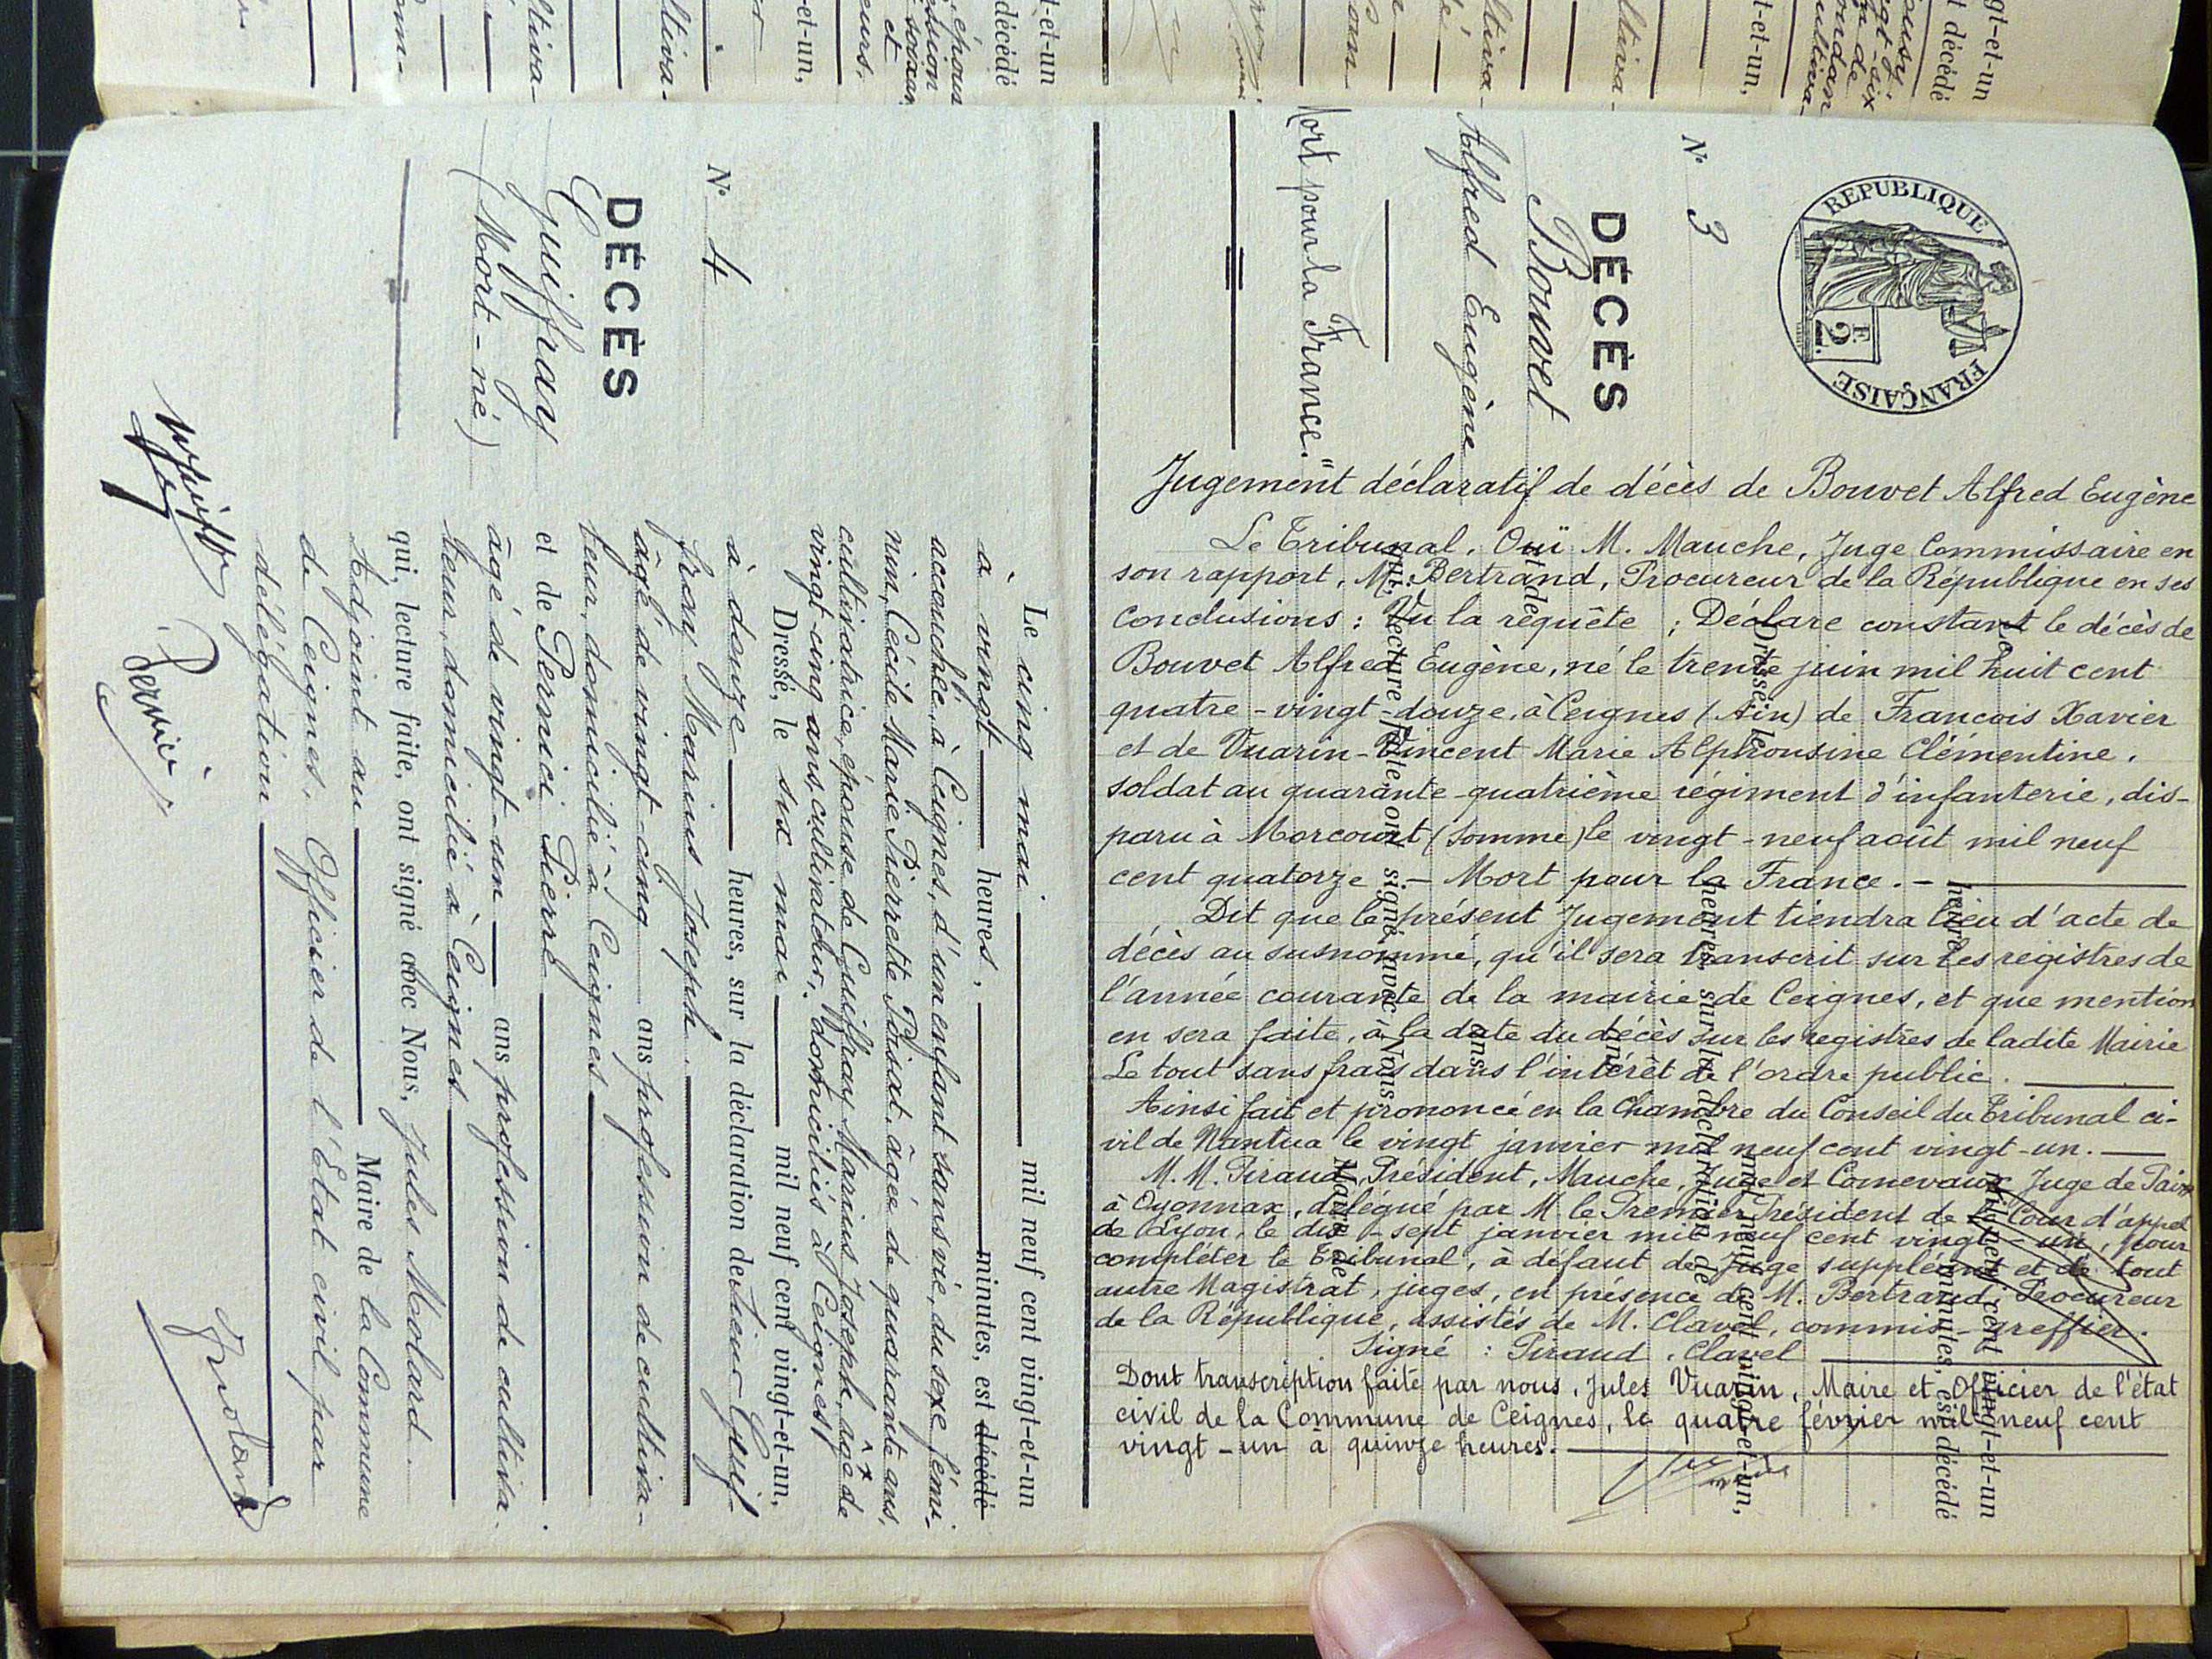 REPUBLIQUE FRANÇAISE
F.
2
N° 3
DÉCÈS
Bouvet
Alfred Eugène
Mort pour la France."
Jugement déclaratif de décès de Bouvet Alfred Eugène
Le Tribunal, Ouï M. Mauche, Juge Commissaire en
son rapport, M. Bertrand, Procureur de la République en ses
conclusions : Vu la requête ; Déclare constant le décès de
Bouvet Alfred Eugène, né le trente juin mil huit cent
quatre-vingt-douze, à Ceignes (Ain) de Francois Xavier
et de Vuarin-Vincent Marie Alphonsine Clémentine,
soldat au quarante-quatrième régiment d'infanterie, dis-
paru à Morcourt (Somme) le vingt-neuf août mil neuf
cent quatorze. – Mort pour la France. –
Dit que le présent Jugement tiendra lieu d'acte de
décès au susnommé, qu'il sera transcrit sur les registres de
l'année courante de la mairie de Ceignes, et que mention
en sera faite, à la date du décès sur les registres de ladite Mairie
Le tout sans frais dans l'intérêt de l'ordre public.
Ainsi fait et prononcé en la Chambre du Conseil du Tribunal ci-
vil de Nantua le vingt janvier mil neuf cent vingt-un.
M.M. Peraud, Président, Mauche, Juge et Cornevaux Juge de Paix
à Oyonnax, délégué par M. le Premier Président de la Cour d'appel
de Lyon, le dix-sept janvier mil neuf cent vingt-un, pour
compléter le Tribunal, à défaut de Juge suppléant et de tout
autre Magistrat, juges, en présence de M. Bertrand, Procureur
de la République, assistés de M. Clavel, commis-greffier.
Signé : Peraud, Clavel
Dont transcription faite par nous, Jules Vuarin, Maire et Officier de l'état
civil de la Commune de Ceignes, le quatre février mil neuf cent
vingt-un à quinze heures.
Le
mil neuf cent vingt-et-un
heures
minutes, est décédé
Dressé, le
mil neuf cent vingt-et-un,
heures, sur la déclaration de
ans
et de
ans
qui, lecture faite, ont signé avec Nous
Maire de
N° 4
DÉCÈS
Guiffray
(Mort-né)
Le cinq mai mil neuf cent vingt-et-un
à vingt heures, minutes, est décédé
accouchée, à Ceignes, d'un enfant sans vie, du sexe fémi-
nin, Cécile Marie Pierrette, âgée de quarante ans,
cultivatrice, épouse de Guiffray Marius Joseph, âgé de
vingt-cinq ans, cultivateur, domiciliés à Ceignes
Dressé, le six mai mil neuf cent vingt-et-un,
à douze heures, sur la déclaration de Guif-
fray Marius Joseph.
âgé de vingt-cinq ans profession de cultiva-
teur, domicilié à Ceignes
et de Pernici Pierre
âgé de vingt-un ans profession de cultiva-
teur, domicilié à Ceignes
qui, lecture faite, ont signé avec Nous, Jules Molard.
Adjoint au Maire de la Commune
de Ceignes, Officier de l'Etat civil par
délégation
Pernici
J. Molard